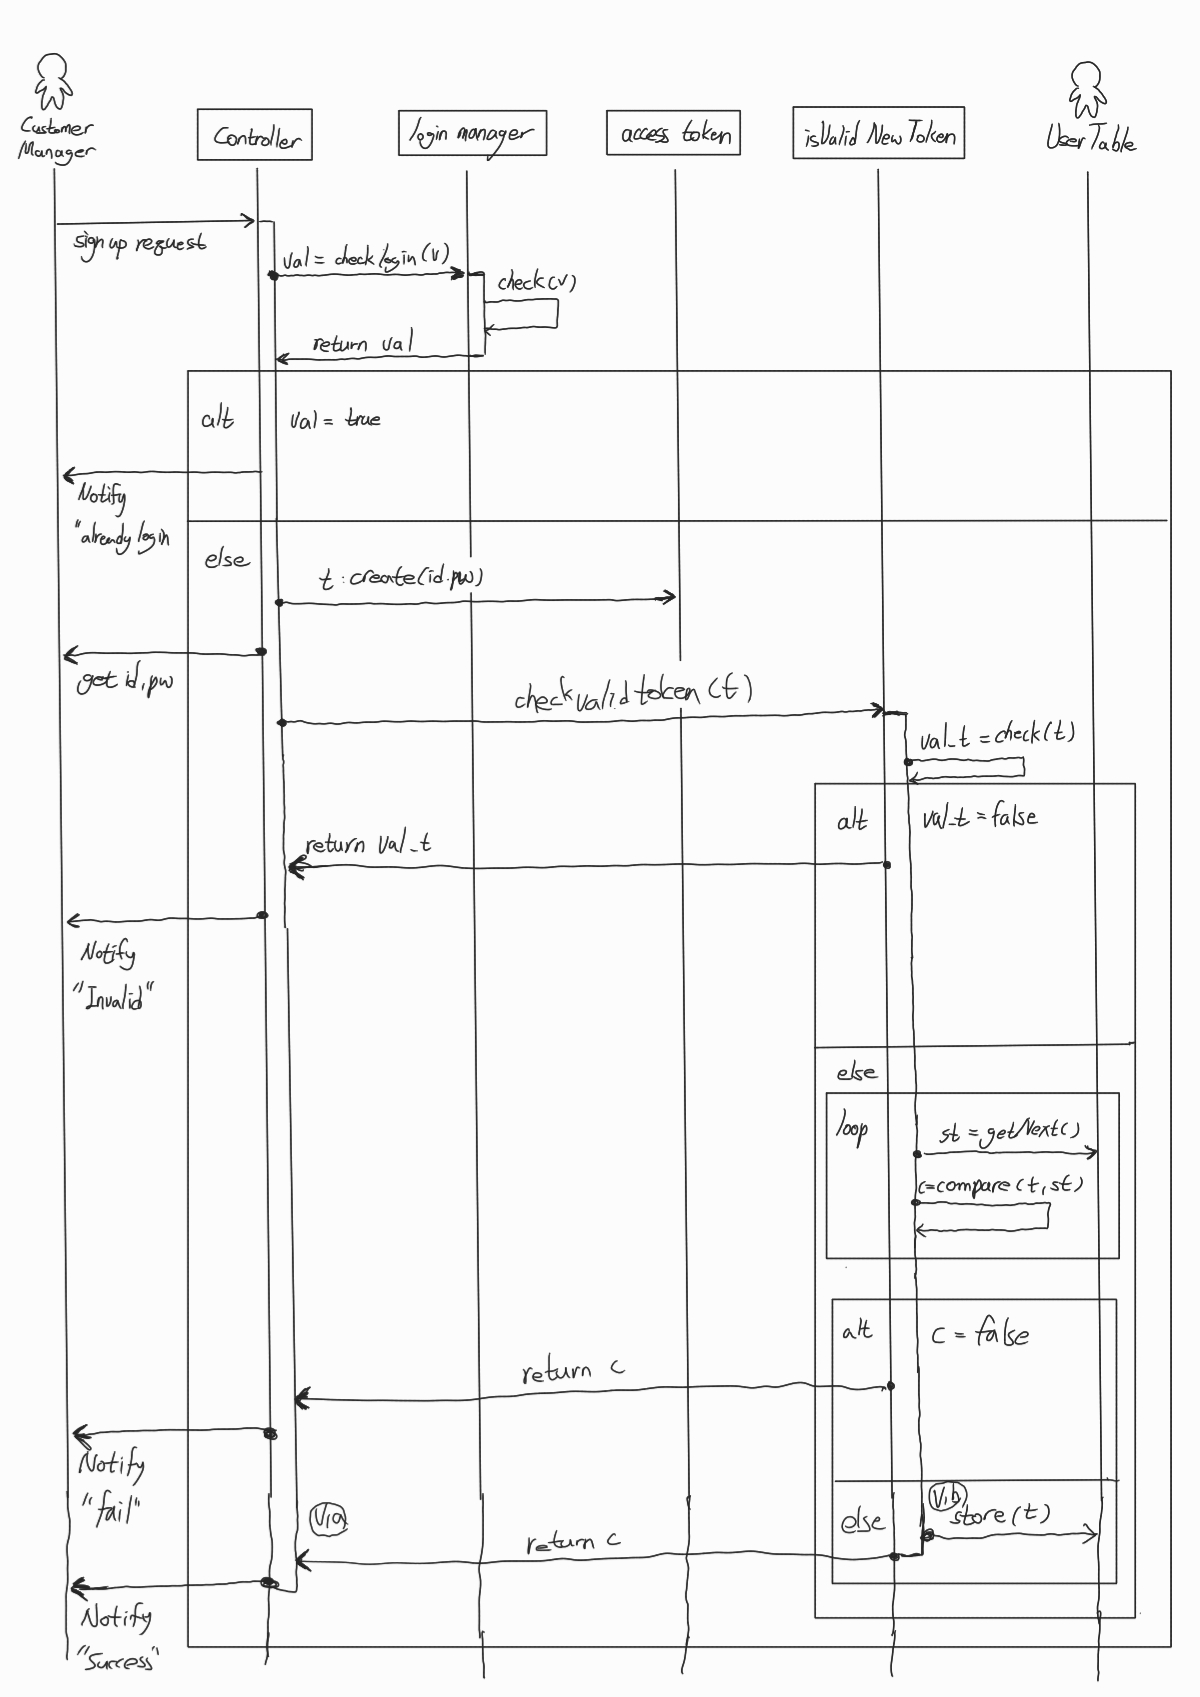 Customer
Manager
Controller
login manager
access token
isValid New Token
User Table
sign up request
val = check login (v)
check (v)
return val
alt
val = true
Notify
"already login
else
t : create (id.pw)
get id, pw
check valid token (t)
val_t = check (t)
alt
val_t = false
return val_t
Notify
"Invalid"
else
loop
st = getNext()
c=compare (t, st)
alt
c = false
return c
Notify
"fail"
V,a
V,b
else
store (t)
return c
Notify
"Success"